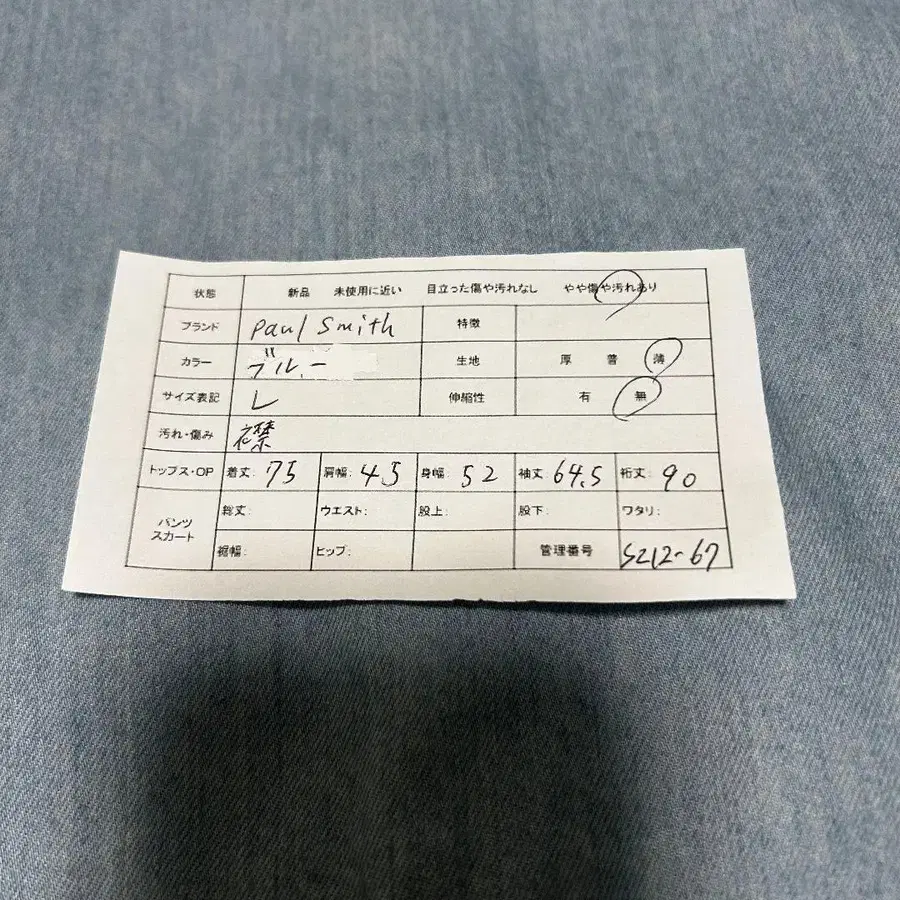 状態 新品 未使用に近い 目立った傷や汚れなし やや傷や汚れあり
ブランド Paul Smith 特徴
カラー ブルー 生地 厚 普 薄
サイズ表記 L 伸縮性 有 無
汚れ・傷み 襟
トップス・OP 着丈: 75 肩幅: 45 身幅: 52 袖丈: 64.5 裄丈: 90
パンツ スカート 総丈: ウエスト: 股上: 股下: ワタリ:
裾幅: ヒップ: 管理番号 S212-67